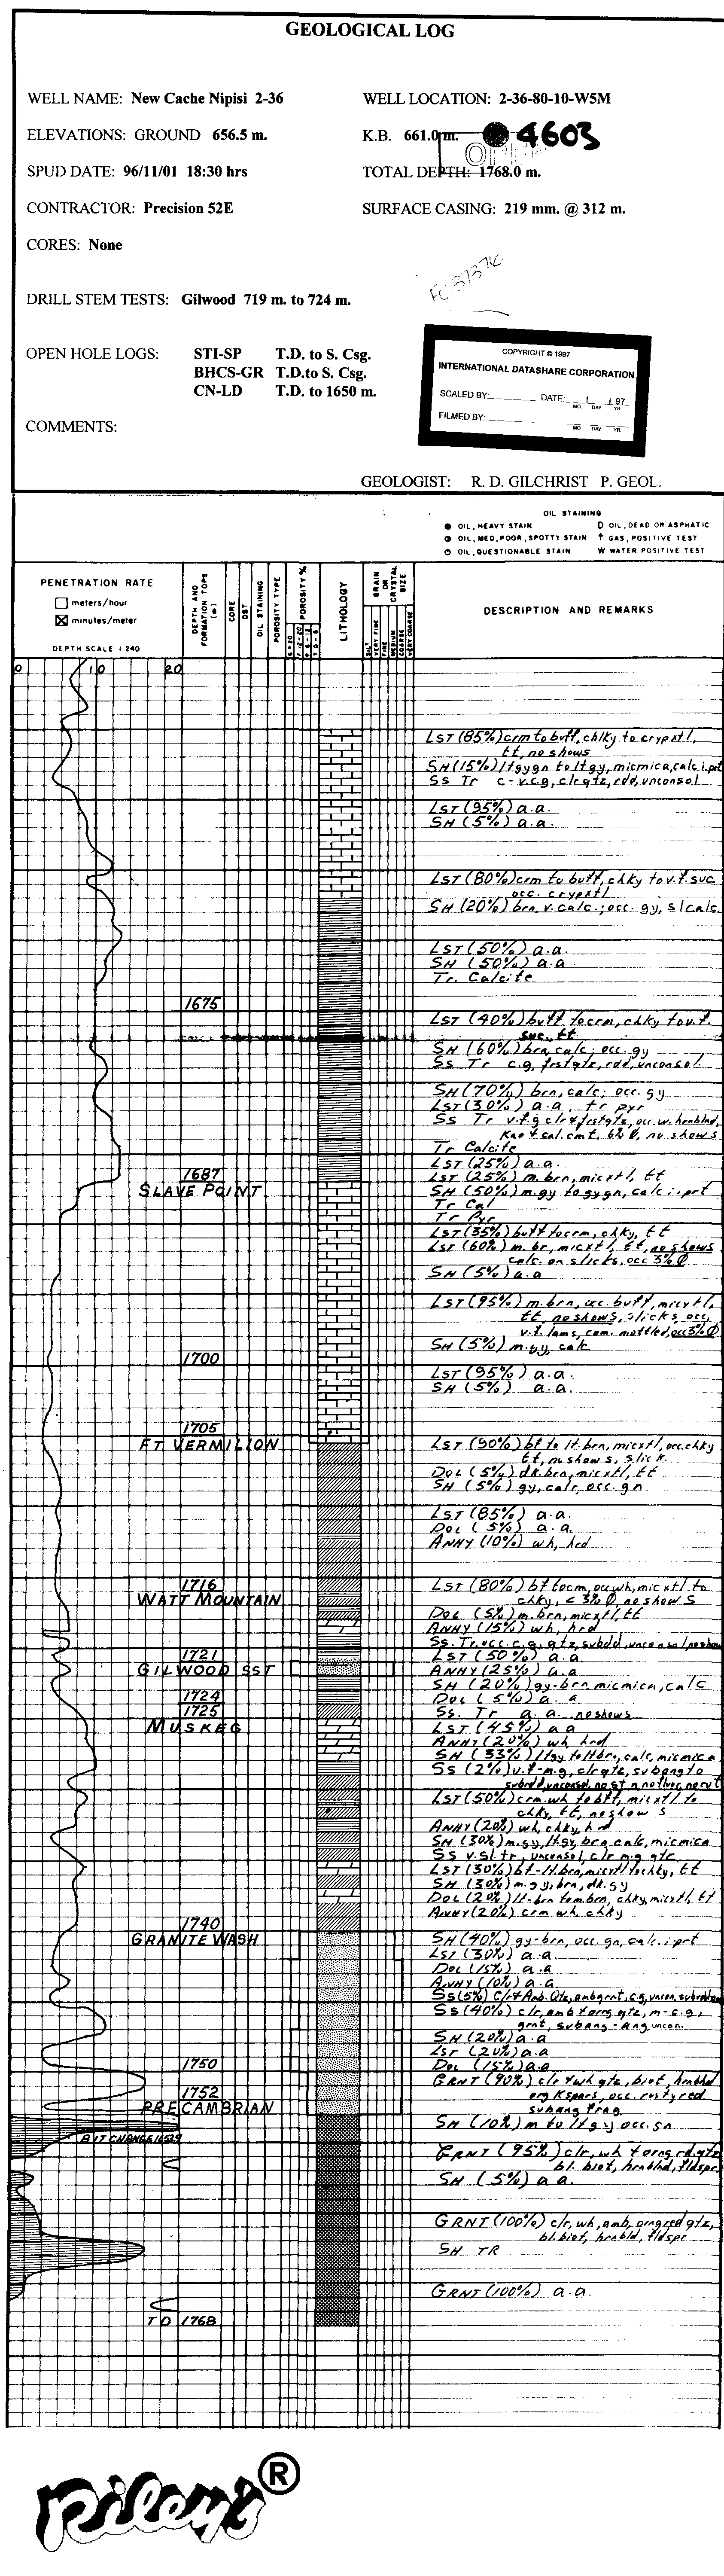 GEOLOGICAL LOG
WELL NAME: New Cache Nipisi 2-36
WELL LOCATION: 2-36-80-10-W5M
ELEVATIONS: GROUND 656.5 m.
K.B. 661.0 m.
4603
SPUD DATE: 96/11/01 18:30 hrs
TOTAL DEPTH: 1768.0 m.
CONTRACTOR: Precision 52E
SURFACE CASING: 219 mm. @ 312 m.
CORES: None
DRILL STEM TESTS: Gilwood 719 m. to 724 m.
OPEN HOLE LOGS: STI-SP T.D. to S. Csg.
BHCS-GR T.D.to S. Csg.
CN-LD T.D. to 1650 m.
COPYRIGHT © 1997
INTERNATIONAL DATASHARE CORPORATION
SCALED BY: DATE: 1 / 97
MO DAY YR
FILMED BY:
MO DAY YR
COMMENTS:
GEOLOGIST: R. D. GILCHRIST P. GEOL.
OIL STAINING
OIL, HEAVY STAIN
D OIL, DEAD OR ASPHATIC
OIL, MED, POOR, SPOTTY STAIN
↑ GAS, POSITIVE TEST
OIL, QUESTIONABLE STAIN
W WATER POSITIVE TEST
PENETRATION RATE
meters/hour
minutes/meter
DEPTH SCALE 1 240
DEPTH AND FORMATION TOPS (m)
CORE
DST
OIL STAINING
POROSITY TYPE
POROSITY %
LITHOLOGY
GRAIN OR CRYSTAL SIZE
SILT
VERY FINE
FINE
MEDIUM
COARSE
VERY COARSE
DESCRIPTION AND REMARKS
0 10 20
LST (85%) crm to buff, chlky to crypxtl,
tt, no shows
SH (15%) ltgygn to ltgy, micmica, calc i.prt
Ss Tr c-v.c.g, clrqtz, rdd, unconsol
LST (95%) a.a.
SH (5%) a.a.
LST (80%) crm to buff, chky to v.f. suc
occ. crypxtl
SH (20%) brn, v.calc.; occ. gy, sl calc.
LST (50%) a.a.
SH (50%) a.a
Tr. Calcite
1675
LST (40%) buff to crm, chky to v.f.
suc., tt
SH (60%) brn, calc; occ. gy
Ss Tr c.g, frstqtz, rdd, unconsol
SH (70%) brn, calc; occ. gy
LST (30%) a.a. tr pyr
Ss Tr v.f.g clr & frstqtz, occ. w. hrnblnd,
Kao & cal. cmt, 6% Ø, no shows
Tr Calcite
LST (25%) a.a.
1687
LST (25%) m.brn, micxtl, tt
SLAVE POINT
SH (50%) m.gy to gygn, calc i.prt
Tr Cal
Tr Pyr
LST (35%) buff to crm, chky, tt
LST (60%) m.br, micxtl, tt, no shows
calc. on slicks, occ 3% Ø
SH (5%) a.a
LST (95%) m.brn, occ. buff, micxtl,
tt, no shows, slicks occ,
v.f. lams, com. mottled, occ 3% Ø
SH (5%) m.gy, calc
1700
LST (95%) a.a.
SH (5%) a.a.
1705
FT. VERMILION
LST (90%) bf to lt.brn, micxtl, occ.chky
tt, no shows, slick.
DOL (5%) dk.brn, micxtl, tt
SH (5%) gy, calc, occ. gn
LST (85%) a.a.
DOL (5%) a.a.
ANHY (10%) wh, hrd
1716
WATT MOUNTAIN
LST (80%) bf to crm, occ wh, micxtl to
chky, < 3% Ø, no shows
DOL (5%) m.brn, micxtl, tt
ANHY (15%) wh, hrd
Ss. Tr. occ. c.g, qtz, subdd, unconsol, no show
1721
LST (50%) a.a.
GILWOOD SST
ANHY (25%) a.a
SH (20%) gy-brn micmica, calc
1724
DOL (5%) a. a
1725
Ss. Tr a. a. no shows
MUSKEG
LST (45%) a a
ANHY (20%) wh, hrd
SH (33%) ltgy to ltbrn, calc, micmica
Ss (2%) v.f-m.g, clrqtz, subang to
subrdd, unconsol, no stn, no fluor, no cut
LST (50%) crm. wh to bff, micxtl to
chky, tt, no shows
ANHY (20%) wh, chky, hrd
SH (30%) m.gy, ltgy, brn calc, micmica
Ss v.sl. tr, unconsol, clr m.g qtz
LST (30%) bf-lt.brn, micxtl to chky, tt
SH (30%) m.gy, brn, dk.gy
DOL (20%) lt-brn to m.brn, chky, micxtl, tt
ANHY (20%) crm wh, chky
1740
GRANITE WASH
SH (40%) gy-brn, occ. gn, calc. i.prt
LST (30%) a.a.
DOL (15%) a.a
ANHY (10%) a.a.
Ss (5%) clr & Amb. Qtz, ambgrnt, c.g, uncon, subrdd
Ss (40%) clr, amb & orng qtz, m-c.g,
grnt, subang-ang, uncon.
SH (20%) a.a
LST (20%) a.a
1750
DOL (15%) a.a
GRNT (90%) clr & wh qtz, biot, hrnblnd
1752
org Kspars, occ. rusty red
PRECAMBRIAN
subang frag
SH (10%) m to lt gy occ. gn
BIT CHANGE
GRNT (95%) clr, wh & orng rd. qtz
bl. biot, hrnblnd, fldspr
SH (5%) a a.
GRNT (100%) clr, wh, amb, orng red qtz,
bl. biot, hrnbld, fldspr
SH TR
GRNT (100%) a.a.
TD 1768
®